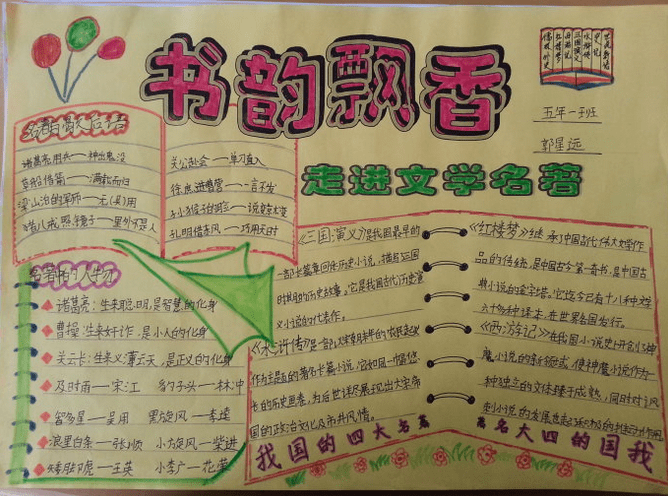 书韵飘香
走进文学名著
五年一班
郭星远
名著的歇后语
诸葛亮用兵——神出鬼没
草船借箭——满载而归
梁山泊的军师——无(吴)用
猪八戒照镜子——里外不是人
关公赴会——单刀直入
徐庶进曹营——一言不发
孔明借东风——巧用天时
名著中的人物
诸葛亮:生来聪明,是智慧的化身
曹操:生来奸诈,是小人的化身
关云长:生来义薄云天,是正义的化身
及时雨——宋江 豹子头——林冲
智多星——吴用 黑旋风——李逵
浪里白条——张顺 小旋风——柴进
矮脚虎——王英 小李广——花荣
《三国演义》是我国最早的
一部长篇章回体历史小说,描写三国
时期的历史故事。它是我国古代历史演
义小说的代表作。
《水浒传》是一部以
作为主题的著名长篇小说,它如同一幅悠
长的历史画卷,为后世详尽展现出大宋帝
国的政治文化及市井风情。
我国的四大名著
《红楼梦》继承了中国古代伟大文学作
品的传统,是中国古今第一奇书,是中国古
典小说的金字塔。它迄今已有十八种文字
六十多种译本,在世界各国发行。
《西游记》在我国小说史上开创了神
魔小说的新领域,使神魔小说作为
一种独立的文体臻于成熟,同时对讽
刺小说的发展也起
著名大四的国我